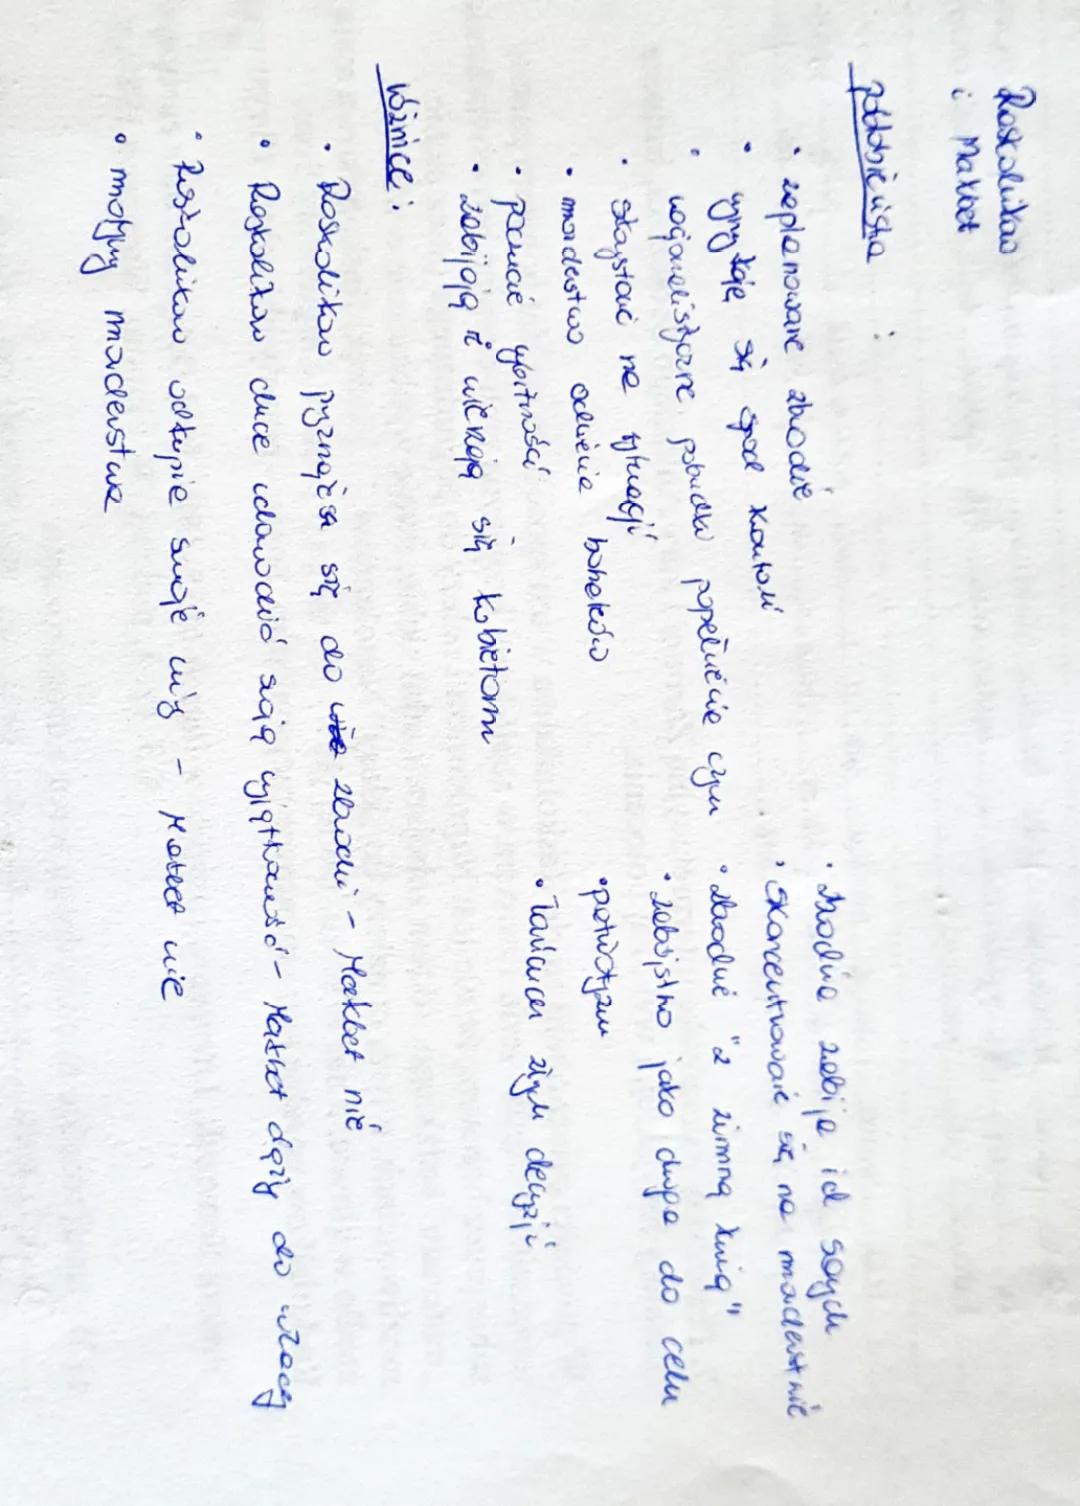 Raskolnikow
i Makbet
podobieństwa :
• zaplanowane zbrodnie
• wymykają się spod kontroli
• racjonalistyczne pobudki popełnienie czynu
• skazani na sytuację
• morderstwo odmienia bohaterów
• poczucie wybitności
• zabijają i zwierzają się kobietom
• zbrodnia zabija ich samych
• skoncentrowanie się na morderstwie
• zbrodnie "z zimną krwią"
• zabójstwo jako droga do celu
• patriotyzm
• łańcuch złych decyzji
Różnice :
• Raskolnikow przyznaje się do zbrodni - Makbet nie
• Raskolnikow chce udowodnić swoją wyjątkowość - Makbet dąży do władzy
• Raskolnikow odkupia swoje winy - Makbet nie
• motywy morderstwa